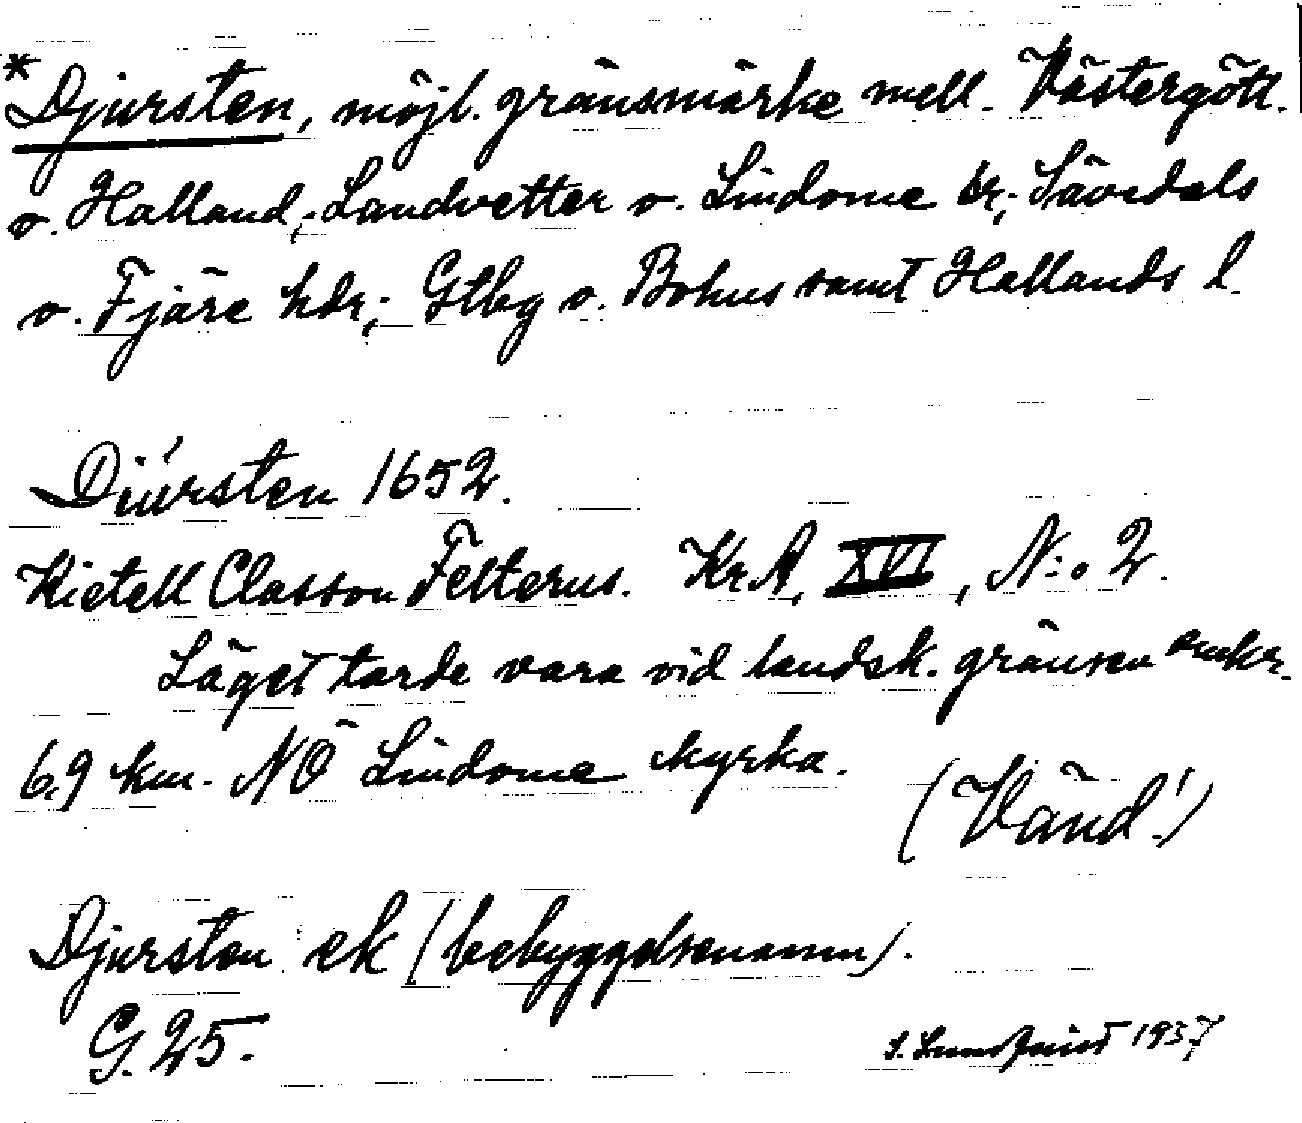 *Djursten, möjl. gränsmärke mell. Västergötl.
o. Halland; Landvetter o. Lindome br; Sävedals
o. Fjäre hdr; Gtbg o. Bohus samt Hallands l.
Diúrsten 1652.
Kietell Classon Felterus. KrA, XVI, N:o 2.
Läget torde vara vid landsk. gränsen omkr.
6,9 km. NÖ Lindome kyrka.
(Vänd!)
Djursten ek (bebyggelsenamn).
G. 25.
1937